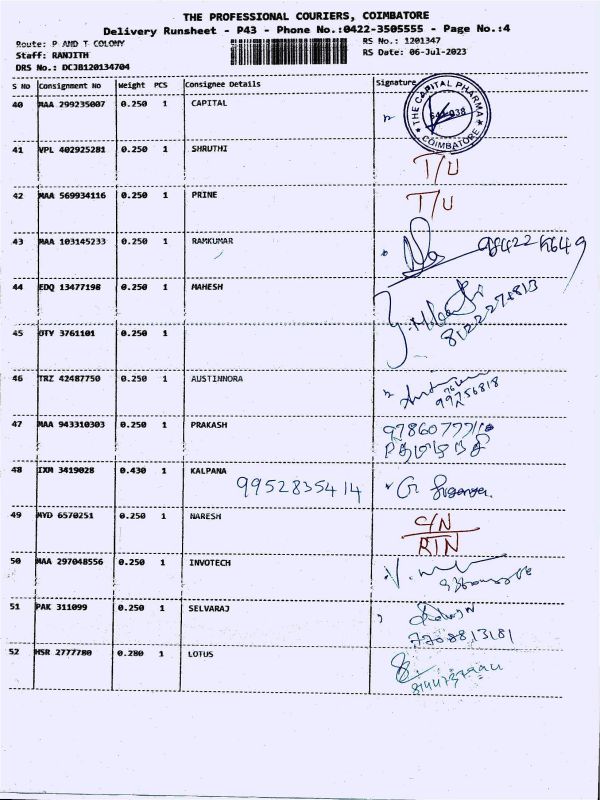 THE PROFESSIONAL COURIERS, COIMBATORE
Delivery Runsheet - P43 - Phone No.:0422-3505555 - Page No.:4
Route: P AND T COLONY RS No.: 1201347
Staff: RANJITH RS Date: 06-Jul-2023
DRS No.: DCJB120134704
S No Consignment No Weight PCS Consignee Details Signature
40 MAA 299235007 0.250 1 CAPITAL THE CAPITAL PHARMA COIMBATORE
41 VPL 402925281 0.250 1 SHRUTHI T/U
42 MAA 569934116 0.250 1 PRINE T/U
43 MAA 103145233 0.250 1 RAMKUMAR
44 EDQ 13477198 0.250 1 MAHESH
45 OTY 3761101 0.250 1
46 TRZ 42487750 0.250 1 AUSTINNORA
47 MAA 943310303 0.250 1 PRAKASH
48 IXM 3419028 0.430 1 KALPANA 9952835414
49 MYD 6570251 0.250 1 NARESH C/N
RTN
50 MAA 297048556 0.250 1 INVOTECH
51 PAK 311099 0.250 1 SELVARAJ
7708813181
52 HSR 2777780 0.280 1 LOTUS